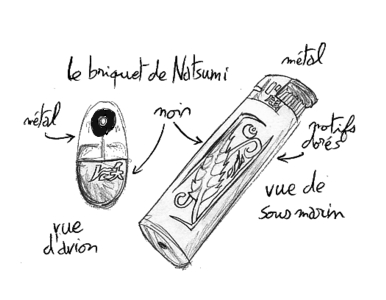 le briquet de Natsumi
métal
métal
noir
motifs
dorés
vue
d'avion
vue de
sous marin